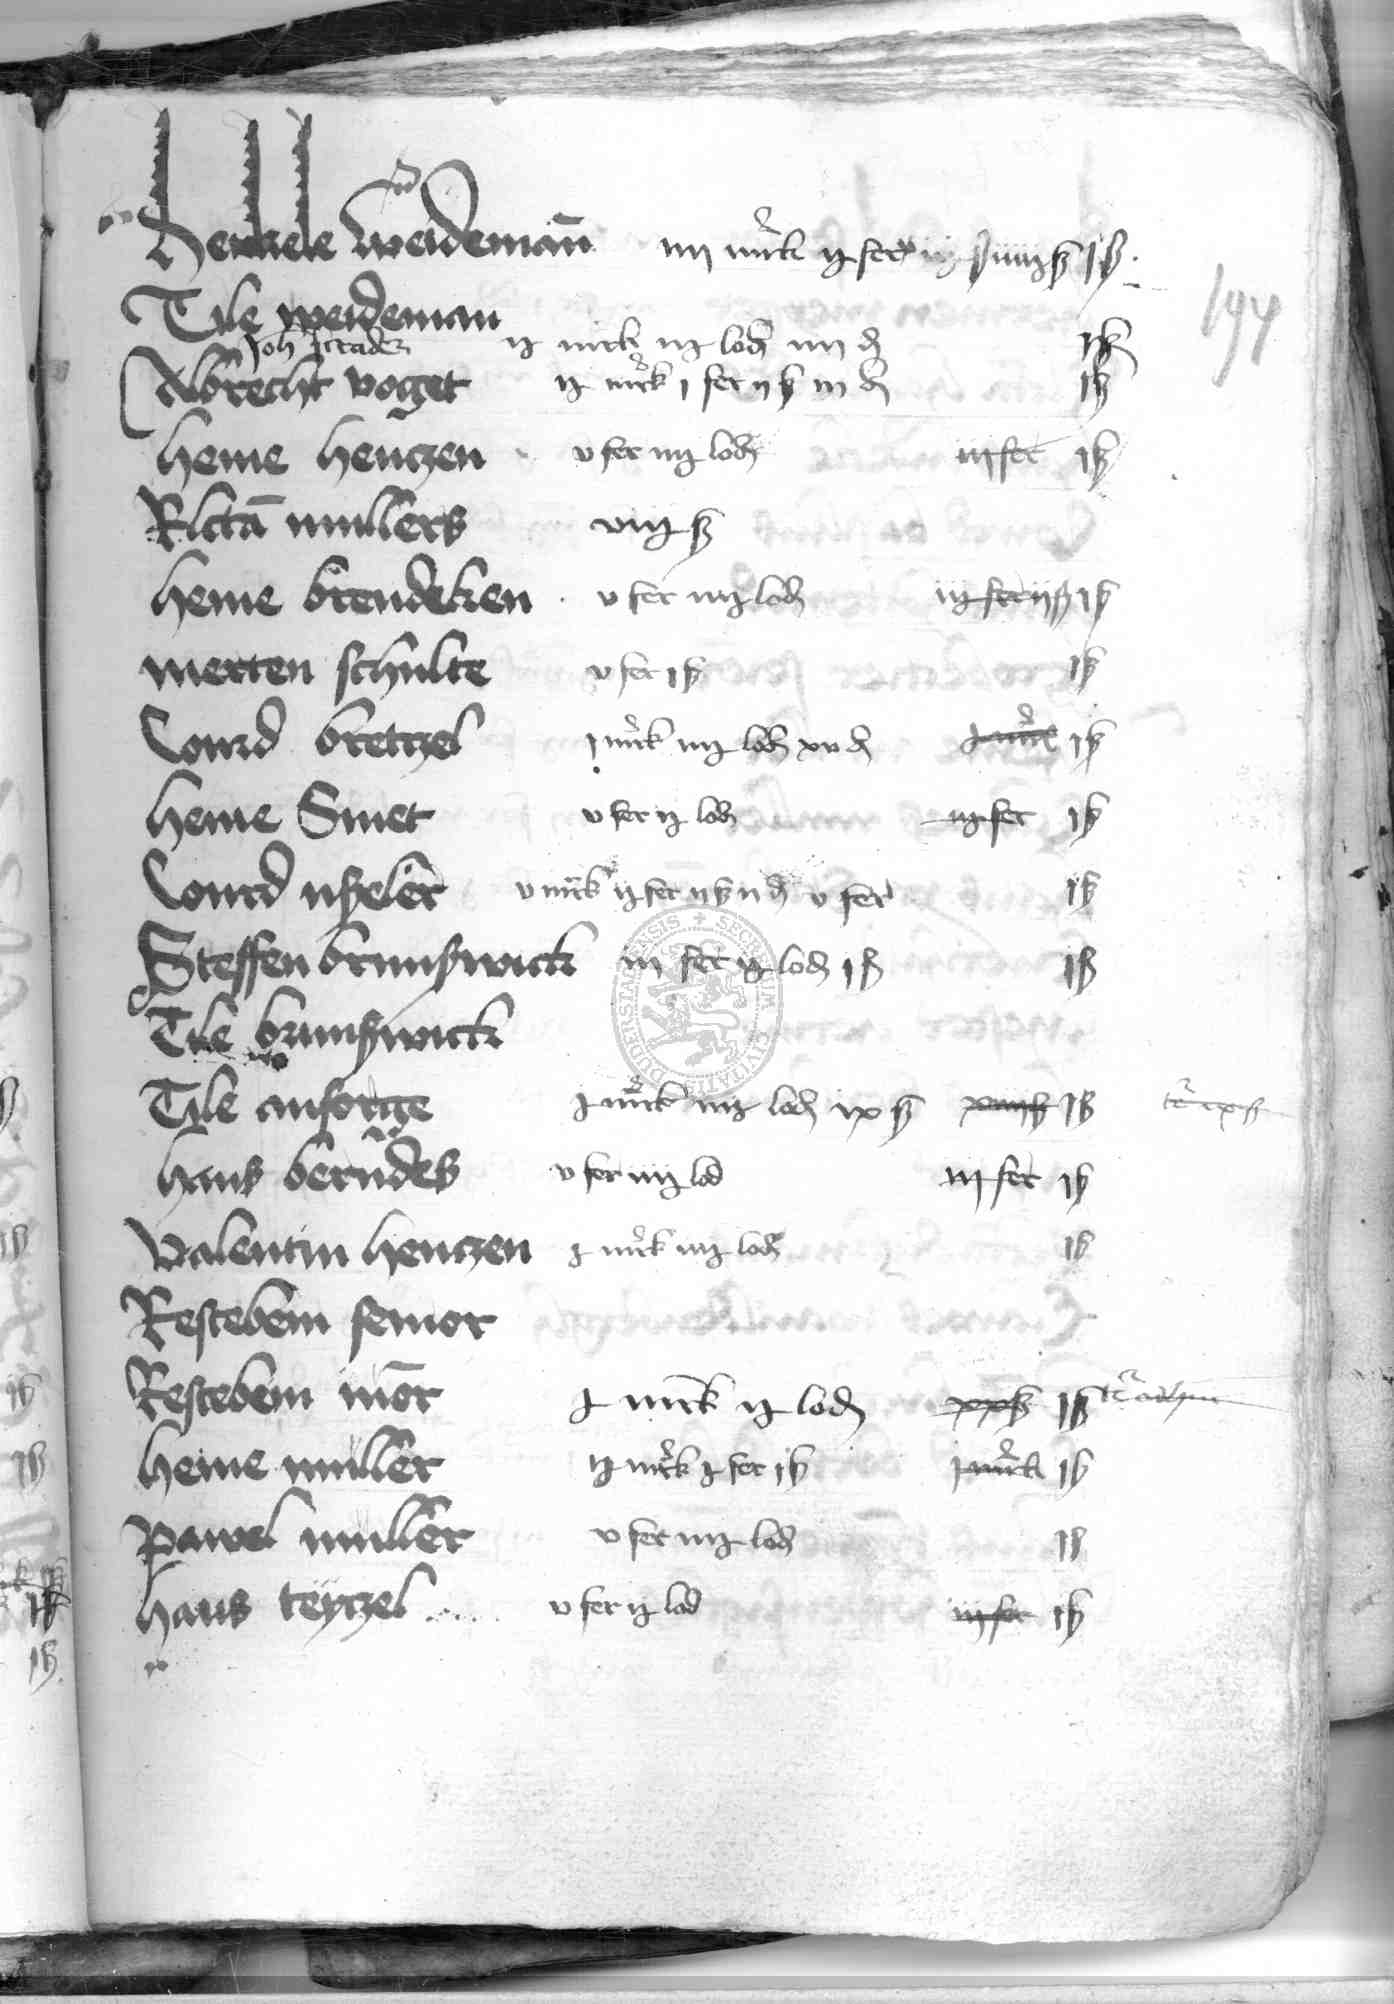 Henkele Weideman̄ iiij mrck ij fer
194
Tile weideman
Joh
ij mrck iij lod iiij d
Albrecht voget ij mrck j fer ij ß iij d iß
heine hentzen v fer iiij lod iij fer iß
Rickā mullers viij ß
heine brendeken v fer iiij lod iij fer ij ß iß
merten schulte v fer iß iß
Cord bretzel j mrck iiij lod xv d j mrck iß
heine Smet v fer ij lod iij fer iß
Cord v mrck ij fer ij ß ij d v fer iß
Steffen brunßwick iij fer ij lod iß iß
Tile brunßwick
Tile ansorge j mrck iiij lod ix ß iß
hans berndes v fer iiij lod iij fer iß
Valentin hentzen j mrck iiij lod iß
Restebem senior
Restebem j mrck ij lod xx ß iß
heine muller ij mrck j fer iß j mrck iß
pawel muller v fer iiij lod iß
hans teytzel v fer ij lod iij fer iß
SECRETUM CIVITATIS DUDERSTADENSIS